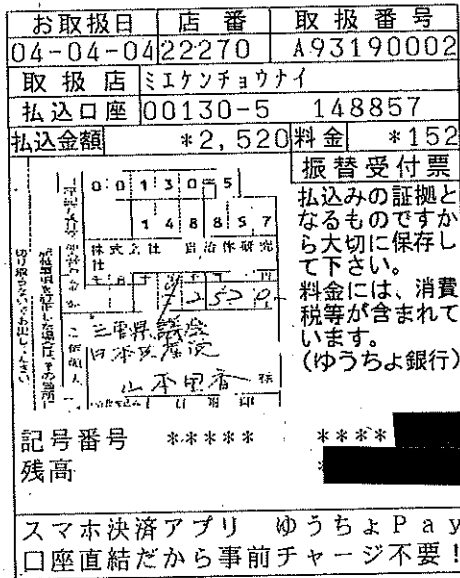 お取扱日 店番 取扱番号
04-04-04 22270 A93190002
取扱店 ミエケンチョウナイ
払込口座 00130-5 148857
払込金額 *2,520 料金 *152
振替受付票
払込みの証拠と
なるものですか
ら大切に保存し
て下さい。
料金には、消費
税等が含まれて
います。
(ゆうちょ銀行)
00130-5
148857
株式会社 自治体研究
社
2520
三重県議会
日本共産党
山本里香 様
切り取らないでお出しください。
記号番号 ***** ****
残高 *
スマホ決済アプリ ゆうちょPay
口座直結だから事前チャージ不要!